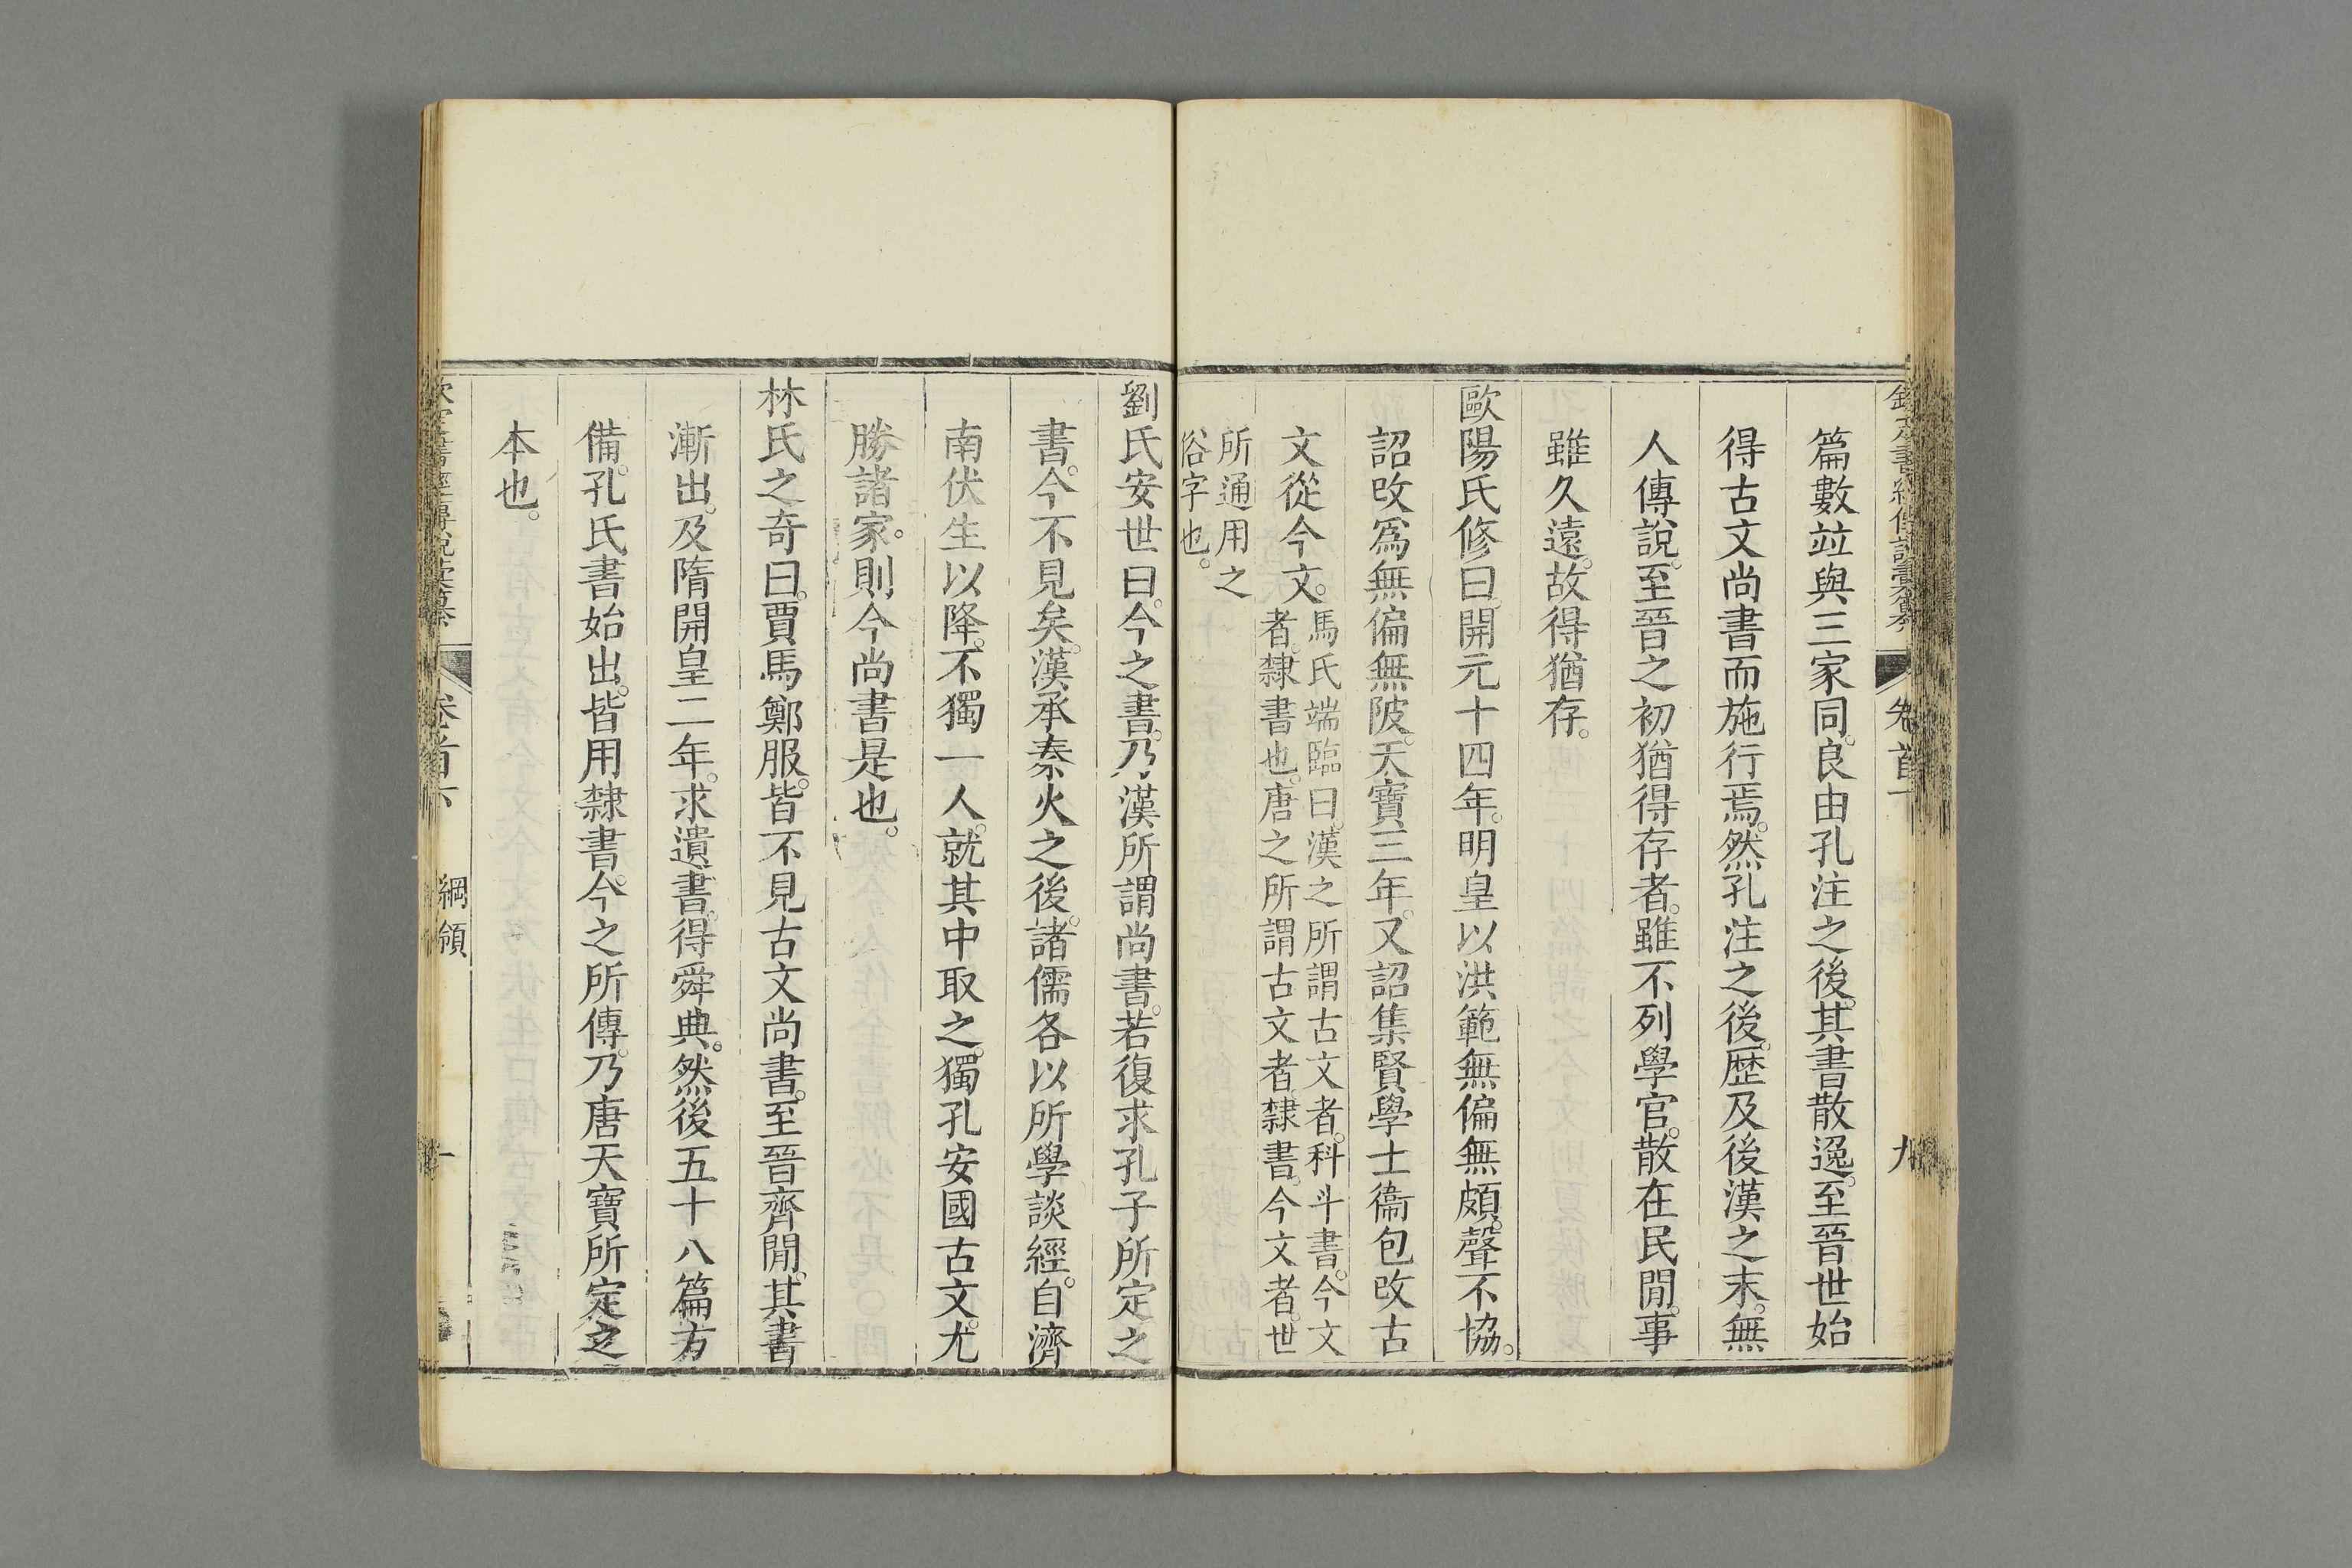 篇數竝與三家同。良由孔注之後。其書散逸。至晉世始
得古文尚書而施行焉。然孔注之後。歷及後漢之末。無
人傳說。至晉之初猶得存者。雖不列學官。散在民閒。事
雖久遠。故得猶存。
歐陽氏修曰。開元十四年。明皇以洪範無偏無頗。聲不協。
詔攺爲無偏無陂。天寶三年。又詔集賢學士衞包攺古
文從今文。馬氏端臨曰。漢之所謂古文者。科斗書。今文
者。隸書也。唐之所謂古文者。隸書。今文者。世
所通用之
俗字也。
劉氏安世曰。今之書。乃漢所謂尚書。若復求孔子所定之
書。今不見矣。漢承秦火之後。諸儒各以所學談經。自濟
南伏生以降。不獨一人。就其中取之。獨孔安國古文。尤
勝諸家。則今尚書是也。
林氏之奇曰。賈馬鄭服。皆不見古文尚書。至晉齊閒。其書
漸出。及隋開皇二年。求遺書。得舜典。然後五十八篇方
備。孔氏書始出。皆用隸書。今之所傳。乃唐天寶所定之
本也。
綱領